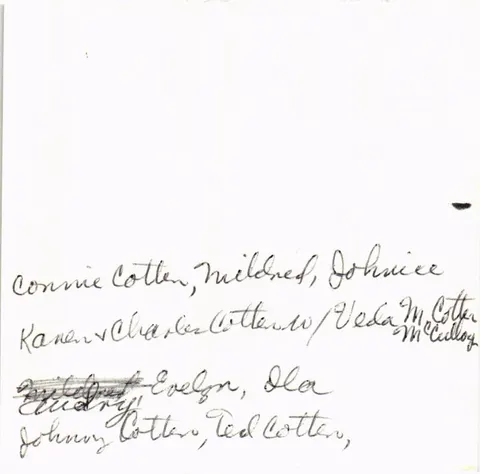 Connie Cotten, Mildred, Johniee
Karen & Charles Cotten w/ Veda M. Cotten
McCulloy
Evelyn, Ila
Johnny Cotten, Ted Cotten,